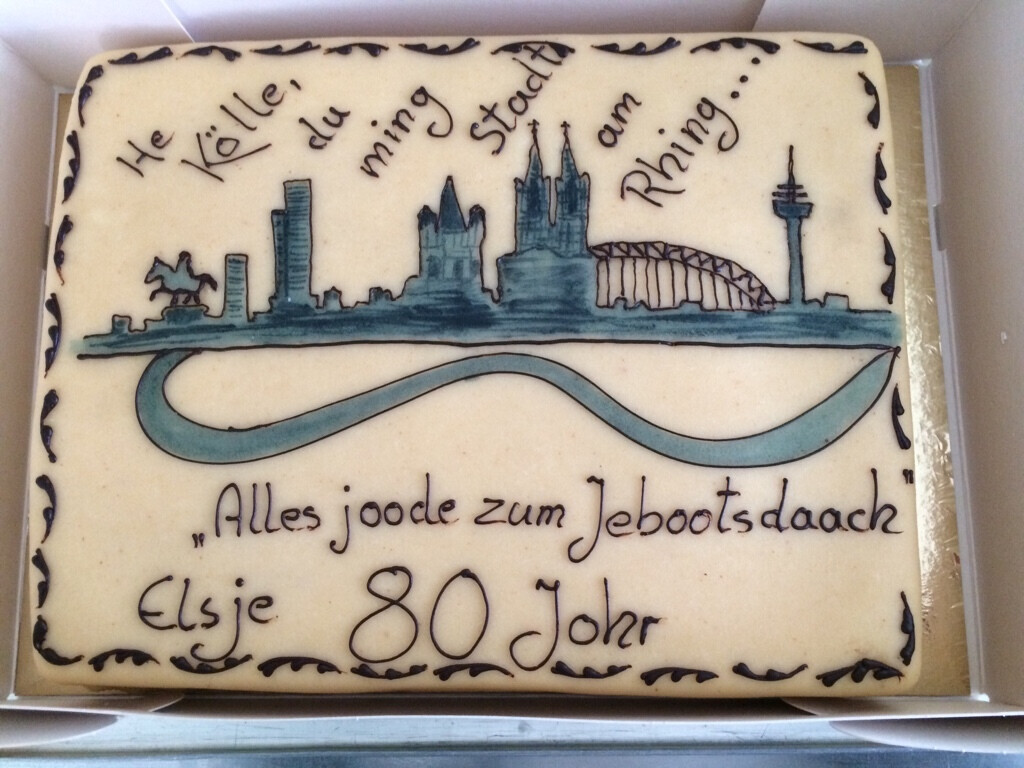 He Kölle, du ming Stadt am Rhing...
„Alles joode zum Jebootsdaach"
Elsje 80 Johr